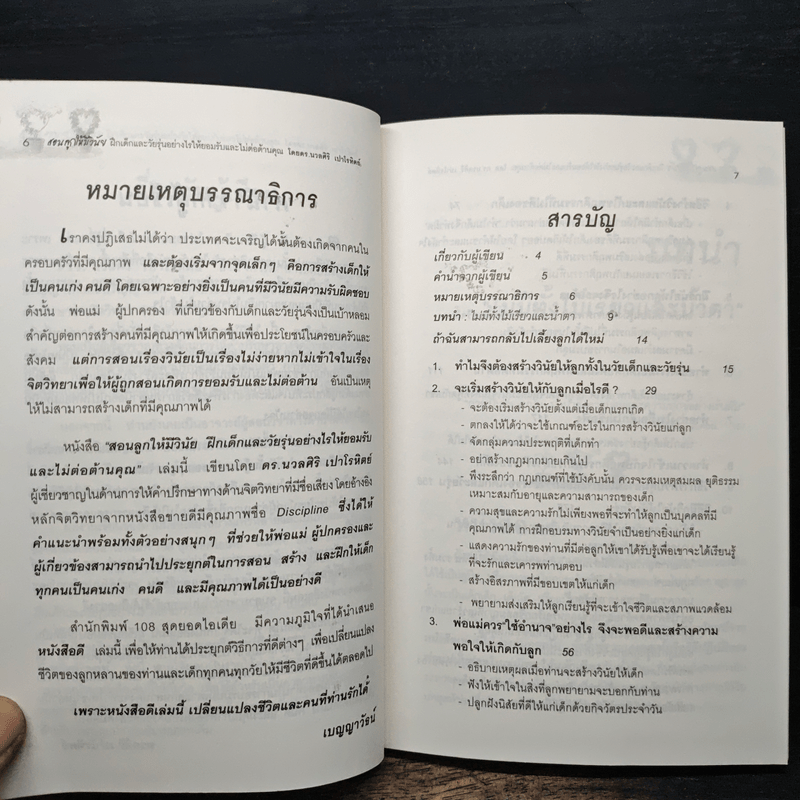 6 สอนลูกให้มีวินัย ฝึกเด็กและวัยรุ่นอย่างไรให้ยอมรับและไม่ต่อต้านคุณ โดยดร.นวลศิริ เปาโรหิตย์.
หมายเหตุบรรณาธิการ
เราคงปฏิเสธไม่ได้ว่า ประเทศจะเจริญได้นั้นต้องเกิดจากคนใน
ครอบครัวที่มีคุณภาพ และต้องเริ่มจากจุดเล็กๆ คือการสร้างเด็กให้
เป็นคนเก่ง คนดี โดยเฉพาะอย่างยิ่งเป็นคนที่มีวินัยมีความรับผิดชอบ
ดังนั้น พ่อแม่ ผู้ปกครอง ที่เกี่ยวข้องกับเด็กและวัยรุ่นจึงเป็นเบ้าหลอม
สำคัญต่อการสร้างคนที่มีคุณภาพให้เกิดขึ้นเพื่อประโยชน์ในครอบครัวและ
สังคม แต่การสอนเรื่องวินัยเป็นเรื่องไม่ง่ายหากไม่เข้าใจในเรื่อง
จิตวิทยาเพื่อให้ผู้ถูกสอนเกิดการยอมรับและไม่ต่อต้าน อันเป็นเหตุ
ให้ไม่สามารถสร้างเด็กที่มีคุณภาพได้
หนังสือ "สอนลูกให้มีวินัย ฝึกเด็กและวัยรุ่นอย่างไรให้ยอมรับ
และไม่ต่อต้านคุณ" เล่มนี้ เขียนโดย ดร.นวลศิริ เปาโรหิตย์
ผู้เชี่ยวชาญในด้านการให้คำปรึกษาทางด้านจิตวิทยาที่มีชื่อเสียงโดยอ้างอิง
หลักจิตวิทยาจากหนังสือขายดีมีคุณภาพชื่อ Discipline ซึ่งได้ให้
คำแนะนำพร้อมทั้งตัวอย่างสนุกๆ ที่ช่วยให้พ่อแม่ ผู้ปกครองและ
ผู้เกี่ยวข้องสามารถนำไปประยุกต์ในการสอน สร้าง และฝึกให้เด็ก
ทุกคนเป็นคนเก่ง คนดี และมีคุณภาพได้เป็นอย่างดี
สำนักพิมพ์ 108 สุดยอดไอเดีย มีความภูมิใจที่ได้นำเสนอ
หนังสือดี เล่มนี้ เพื่อให้ท่านได้ประยุกต์วิธีการที่ดีต่างๆ เพื่อเปลี่ยนแปลง
ชีวิตของลูกหลานของท่านและเด็กทุกคนทุกวัยให้มีชีวิตที่ดีขึ้นได้ตลอดไป
เพราะหนังสือดีเล่มนี้ เปลี่ยนแปลงชีวิตและคนที่ท่านรักได้
เบญญาวัธน์
7
สารบัญ
เกี่ยวกับผู้เขียน 4
คำนำจากผู้เขียน 5
หมายเหตุบรรณาธิการ 6
บทนำ : ไม่มีทั้งไม้เรียวและน้ำตา 9
ถ้าฉันสามารถกลับไปเลี้ยงลูกได้ใหม่ 14
1. ทำไมจึงต้องสร้างวินัยให้ลูกทั้งในวัยเด็กและวัยรุ่น 15
2. จะเริ่มสร้างวินัยให้กับลูกเมื่อไรดี ? 29
- จะต้องเริ่มสร้างวินัยตั้งแต่เมื่อเด็กแรกเกิด
- ตกลงให้ได้ว่าจะใช้เกณฑ์อะไรในการสร้างวินัยแก่ลูก
- จัดกลุ่มความประพฤติที่เด็กทำ
- อย่าสร้างกฎมากมายเกินไป
- พึงระลึกว่า กฎเกณฑ์ที่ใช้บังคับนั้น ควรจะสมเหตุสมผล ยุติธรรม
เหมาะสมกับอายุและความสามารถของเด็ก
- ความสุขและความรักไม่เพียงพอที่จะทำให้ลูกเป็นบุคคลที่มี
คุณภาพได้ การฝึกอบรมทางวินัยจำเป็นอย่างยิ่งแก่เด็ก
- แสดงความรักของท่านที่มีต่อลูกให้เขาได้รับรู้เพื่อเขาจะได้เรียนรู้
ที่จะรักและเคารพท่านตอบ
- สร้างอิสรภาพที่มีขอบเขตให้แก่เด็ก
- พยายามส่งเสริมให้ลูกเรียนรู้ที่จะเข้าใจชีวิตและสภาพแวดล้อม
3. พ่อแม่ควร"ใช้อำนาจ"อย่างไร จึงจะพอดีและสร้างความ
พอใจให้เกิดกับลูก 56
- อธิบายเหตุผลเมื่อท่านจะสร้างวินัยให้เด็ก
- ฟังให้เข้าใจในสิ่งที่ลูกพยายามจะบอกกับท่าน
- ปลูกฝังนิสัยที่ดีให้แก่เด็กด้วยกิจวัตรประจำวัน